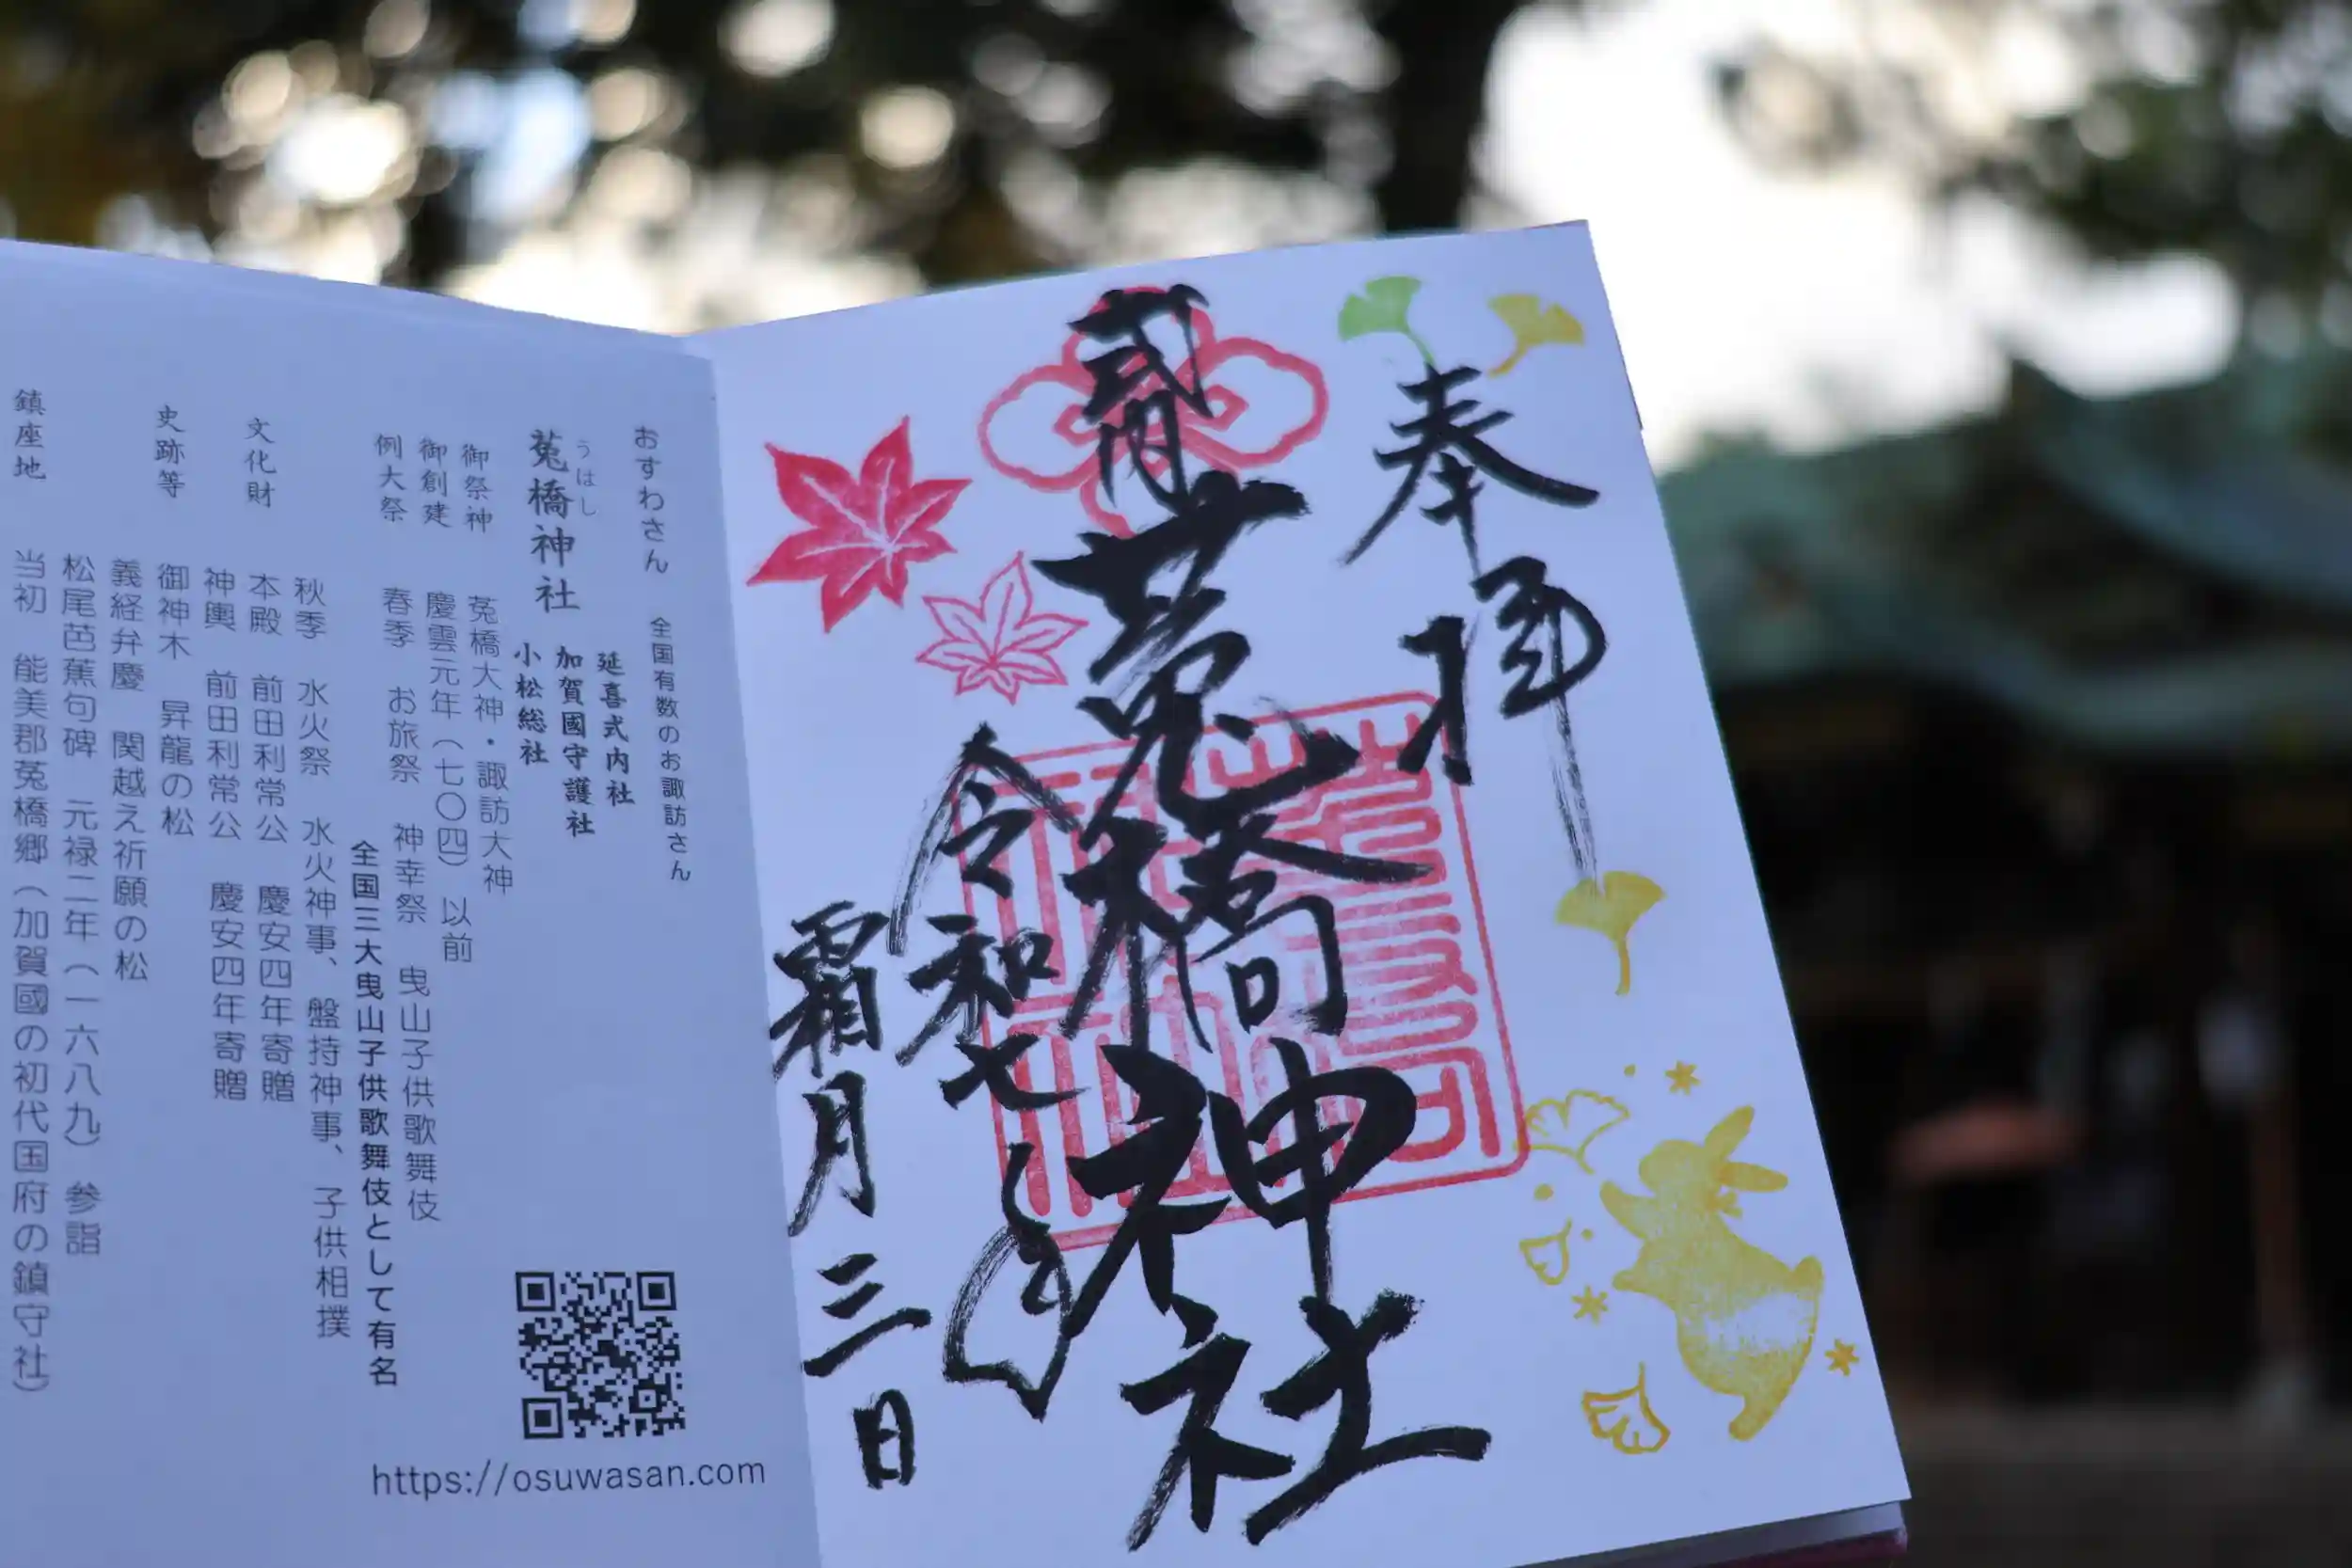 奉拝
式内
菟橋神社
令和七年
霜月三日
おすわさん 全国有数のお諏訪さん
延喜式内社
うはし
菟橋神社 加賀國守護社
小松総社
御祭神 菟橋大神・諏訪大神
御創建 慶雲元年(七〇四)以前
例大祭 春季 お旅祭 神幸祭 曳山子供歌舞伎
全国三大曳山子供歌舞伎として有名
秋季 水火祭 水火神事、盤持神事、子供相撲
文化財 本殿 前田利常公 慶安四年寄贈
神輿 前田利常公 慶安四年寄贈
史跡等 御神木 昇龍の松
義経弁慶 関越え祈願の松
松尾芭蕉句碑 元禄二年(一六八九)参詣
鎮座地 当初 能美郡菟橋郷(加賀國の初代国府の鎮守社)
https://osuwasan.com